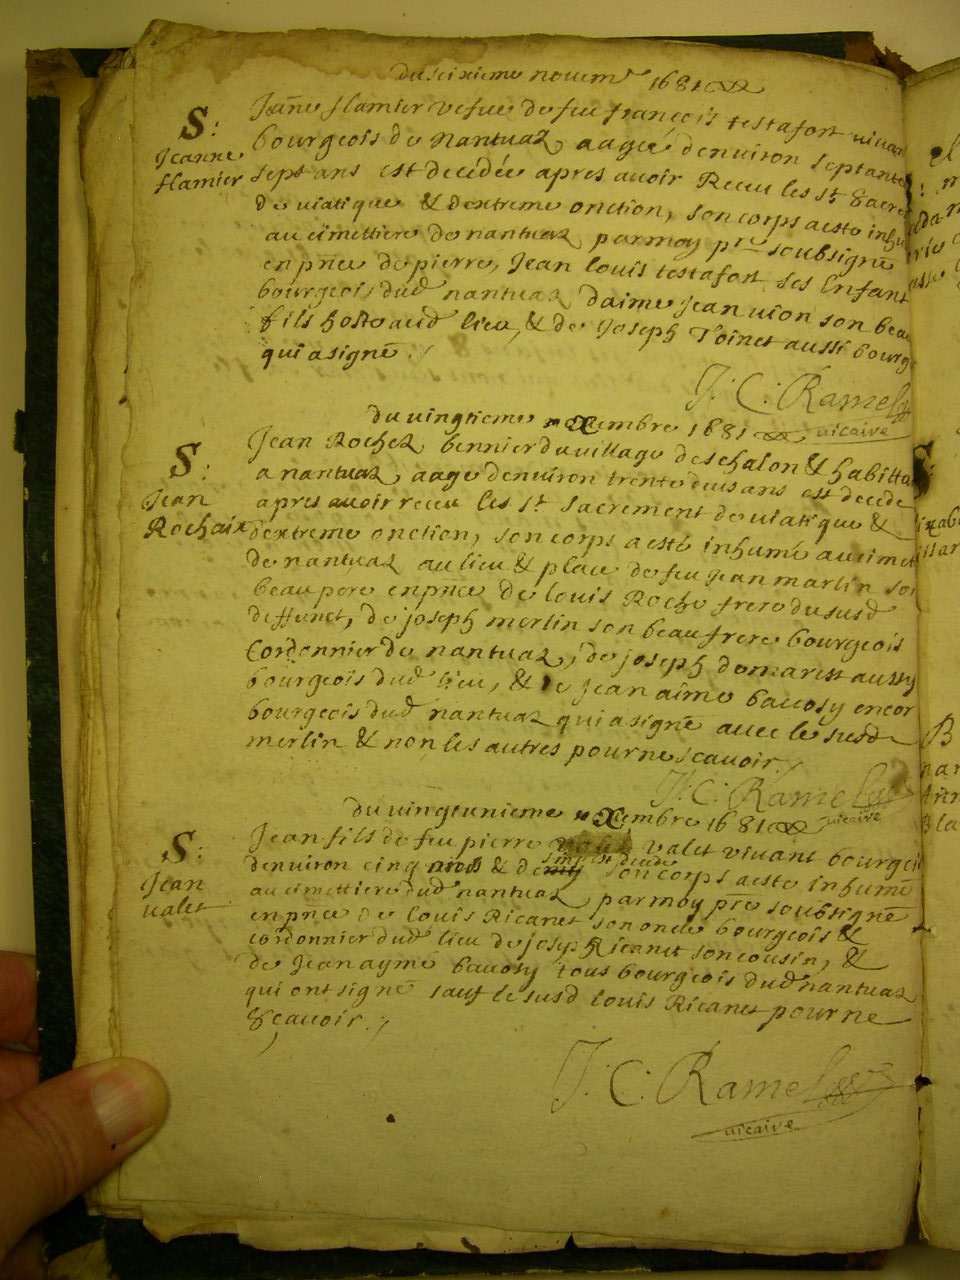 du sixieme novem^re 1681
S: Jeanne flamier
Jeãne flamier vefue de feu francois testafort vivan
bourgeois de Nantuaz, aagée denviron septante
sept ans est decedée apres avoir Receu les s^t sacre
de viatique & dextreme onction, son corps a esté inhu
au cimettiere de nantuaz par moy p^re soubsigné
en pñce de pierre, Jean louis testafort ses Enfant
bourgeois dud nantuaz daime Jean vion son beau
fils hoste aud lieu, & de Joseph Toinet aussi bourg
qui a signé ./
J: C: Ramel
vicaire
du vingtieme Xembre 1681
S: Jean Rochaix
Jean Rochez, bennier du village deschalon & habitta
a nantuaz, aage denviron trente ans est decede
apres avoir receu les s^t sacrement de viatique &
dextreme onction, son corps a esté inhumé au cimet
de nantuaz au lieu & place de feu Jean marlin son
beau pere en pñce de louis Roche frere du susd
deffunct, de joseph merlin son beau frere bourgeois
Cordonnier de nantuaz, de joseph domarest aussy
bourgeois dud lieu, & de jean aime bavosy encor
bourgeois dud nantuaz qui a signé avec le susd
merlin & non les autres pour ne scavoir ./
J: C: Ramel
vicaire
du vingt unieme Xembre 1681
S: Jean valet
Jean fils de feu pierre valet vivant bourgeoi
denviron cinq & demy son corps a esté inhumé
au cimettiere dud nantuaz par moy p^re soubsigné
en pñce de louis Ricanet son oncle bourgeois &
cordonnier dud lieu de joseph Ricanet son cousin, &
de Jean aymé bavosy tous bourgeois dud nantuaz
qui ont signé sauf le susd louis Ricanet pour ne
scavoir ./
J: C: Ramel
vicaire